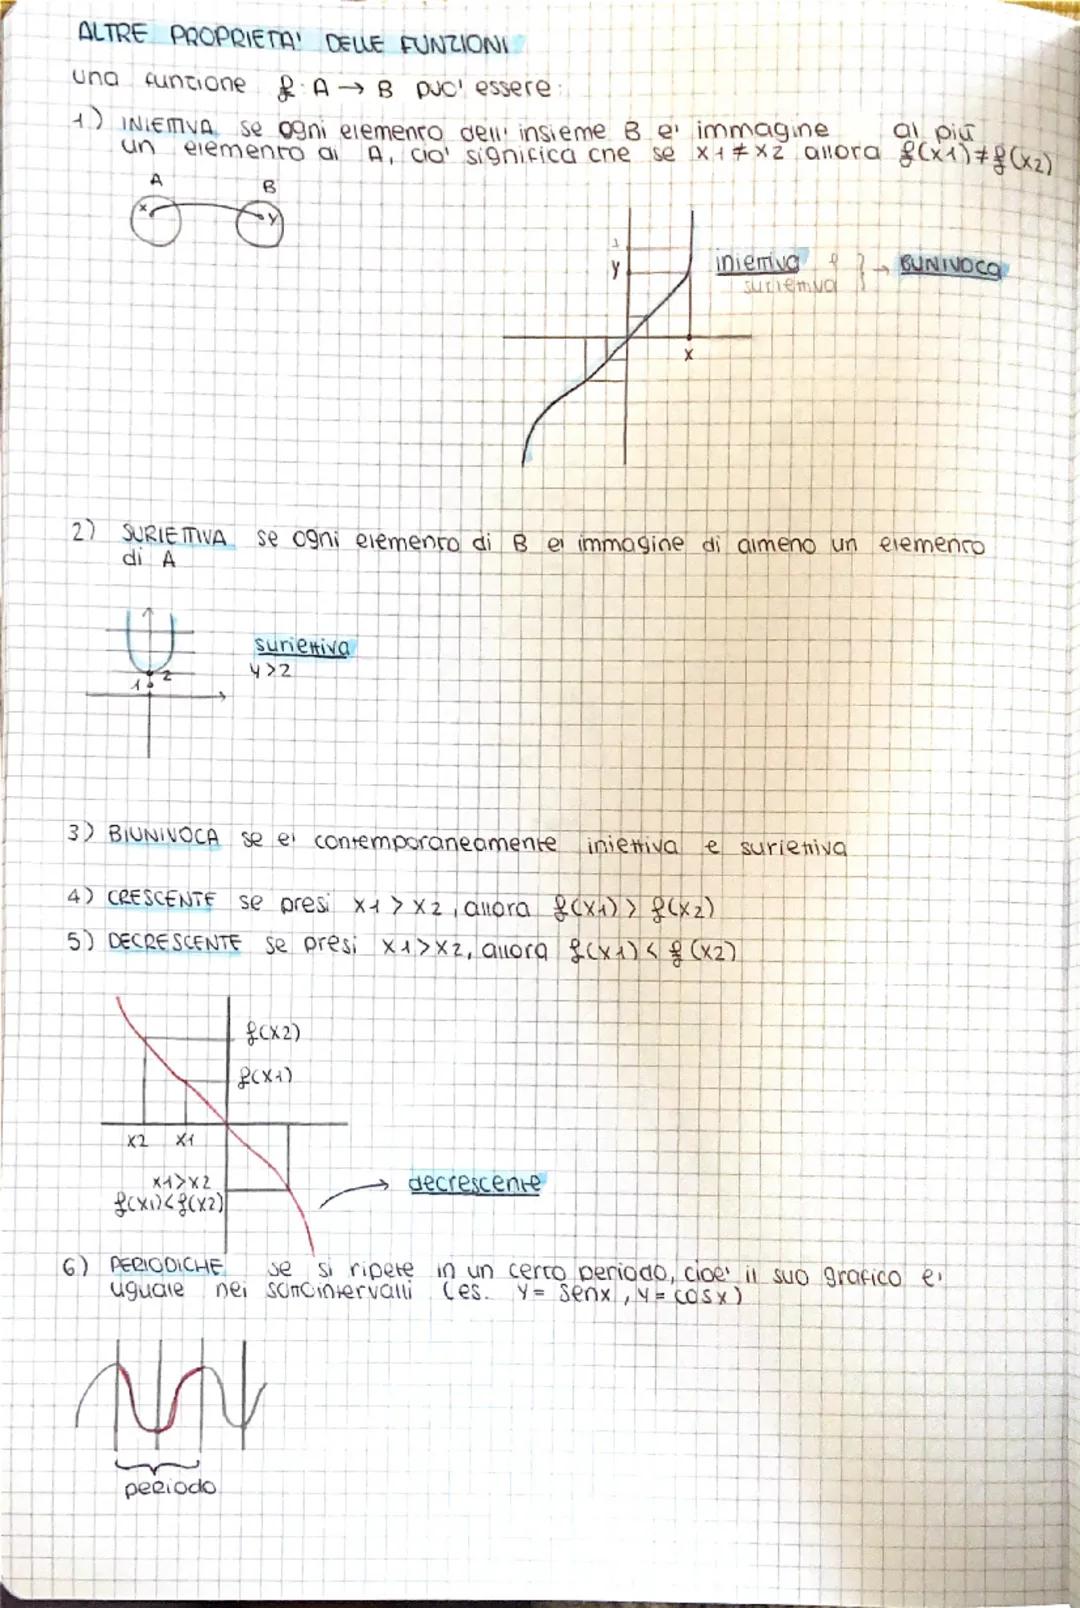 ALTRE PROPRIETA' DELLE FUNZIONI
una funzione f: A → B puo' essere:
1) INIETTIVA se ogni elemento dell' insieme B e' immagine al più
un elemento di A, cio' significa che se x1 ≠ x2 allora f(x1) ≠ f(x2)
A B
x y
y
iniettiva e } → BUNIVOCA
suriettiva
x
2) SURIETTIVA se ogni elemento di B e' immagine di almeno un elemento
di A
suriettiva
y>2
1 2
3) BIUNIVOCA se e' contemporaneamente iniettiva e suriettiva
4) CRESCENTE se presi x1 > x2, allora f(x1) > f(x2)
5) DECRESCENTE se presi x1>x2, allora f(x1) < f(x2)
f(x2)
f(x1)
x2 x1
x1>x2
f(x1)<f(x2)
→ decrescente
6) PERIODICHE se si ripete in un certo periodo, cioe' il suo grafico e'
uguale nei sottointervalli (es. y= senx, y= cosx)
periodo